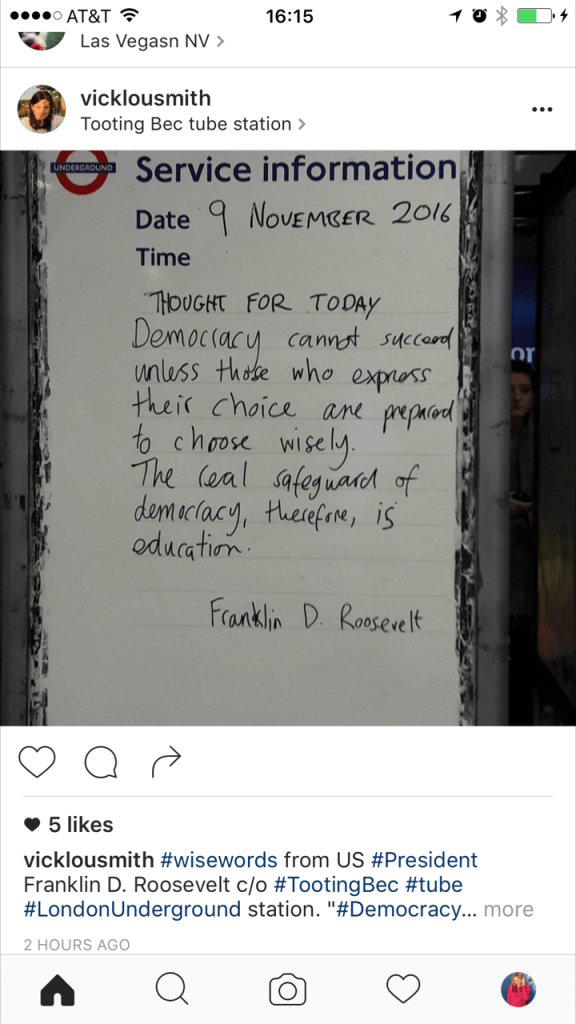 AT&T 16:15
Las Vegasn NV >
vicklousmith
Tooting Bec tube station >
UNDERGROUND
Service information
Date 9 NOVEMBER 2016
Time
THOUGHT FOR TODAY
Democracy cannot succeed
unless those who express
their choice are prepared
to choose wisely.
The real safeguard of
democracy, therefore, is
education.
Franklin D. Roosevelt
or
5 likes
vicklousmith #wisewords from US #President
Franklin D. Roosevelt c/o #TootingBec #tube
#LondonUnderground station. "#Democracy... more
2 HOURS AGO